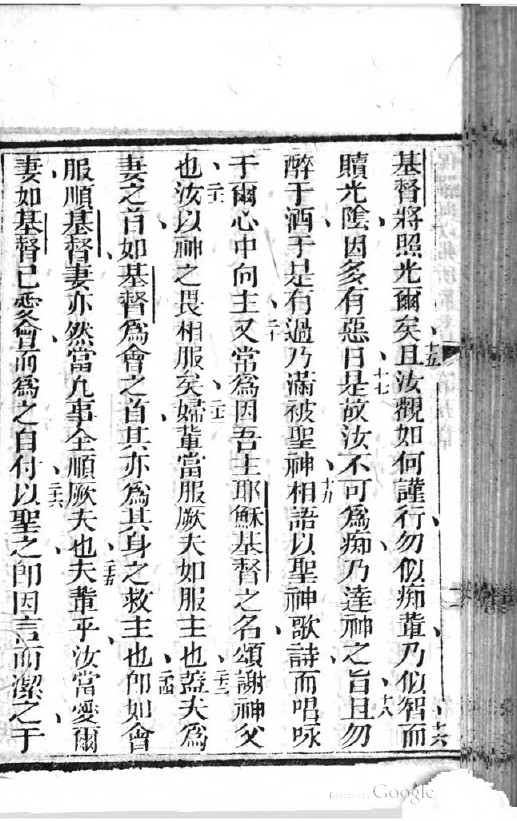 基督將照光爾矣且汝觀如何謹行勿似痴輩乃似智而
贖光陰因多有惡日是故汝不可為痴乃達神之旨且勿
醉于酒于是有過乃滿被聖神相語以聖神歌詩而唱咏
于爾心中向主又常為因吾主耶穌基督之名頌謝神父
也汝以神之畏相服矣婦輩當服厥夫如服主也蓋夫為
妻之首如基督為會之首其亦為其身之救主也即如會
服順基督妻亦然當凡事全順厥夫也夫輩乎汝當愛爾
妻如基督已愛會而為之自付以聖之即因言而潔之于
十五
十六
十七
十八
十九
二十
二一
二二
二三
二四
二五
二六
Digitized by Google